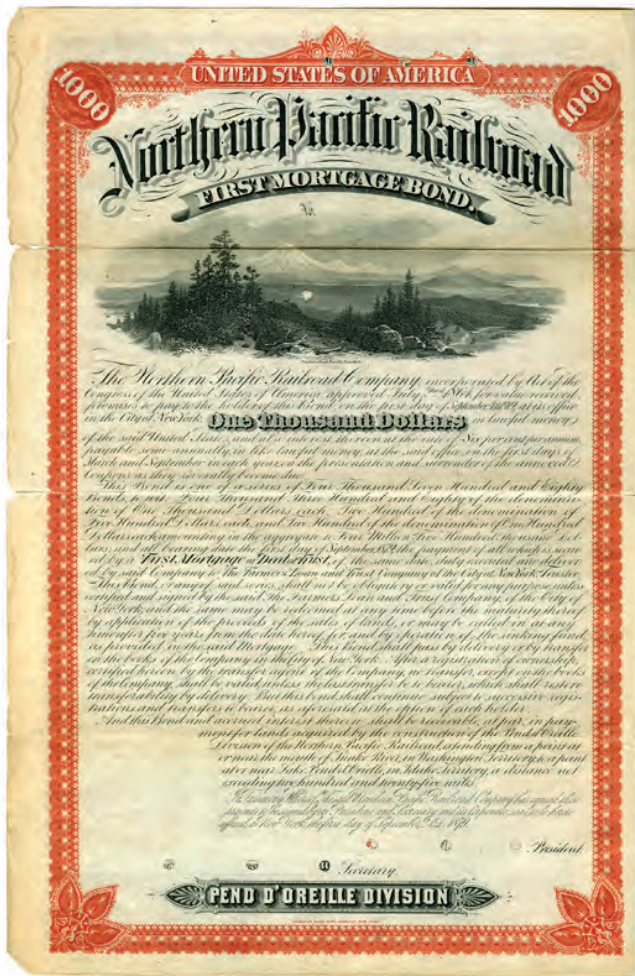 UNITED STATES OF AMERICA
1000
1000
Northern Pacific Railroad
FIRST MORTGAGE BOND.
No.
The Northern Pacific Railroad Company, incorporated by Act of the
Congress of the United States of America approved July 1864 for value received,
promises to pay to the holder of this Bond on the first day of September at its office
in the City of New York One Thousand Dollars in lawful money
of the said United States, and also interest thereon at the rate of Six per cent per annum,
payable semi-annually in like lawful money at the said office, on the first days of
March and September in each year, on the presentation and surrender of the annexed
Coupons as they severally become due.
This Bond is one of a series of Four Thousand Seven Hundred and Eighty
Bonds, to wit, Four Thousand Three Hundred and Eighty of the denomina-
tion of One Thousand Dollars each, Two Hundred of the denomination of
Five Hundred Dollars each, and Two Hundred of the denomination of One Hundred
Dollars each, amounting in the aggregate to Four Million Five Hundred thousand Dol-
lars, and all bearing date the first day of September 1879, the payment of all which is secur-
ed by a First Mortgage or Deed of Trust, of the same date, duly executed and deliver-
ed by said Company to the Farmers Loan and Trust Company of the City of New York, Trustee.
This Bond, or any of the series, shall not be obligatory or valid for any purpose unless
certified and signed by the said, the Farmers Loan and Trust Company, of the City of
New York, and the same may be redeemed at any time before the maturity thereof
by application of the proceeds of the sales of lands, or may be called in at any
time after five years from the date hereof, for and by operation of the sinking fund,
as provided in the said Mortgage. This Bond shall pass by delivery or by transfer
on the books of the Company in the City of New York. After a registration of ownership,
certified hereon by the transfer agent of the Company, no transfer, except on the books
of the Company, shall be valid, unless the last transfer be to bearer, which shall restore
transferability by delivery. But this bond shall continue subject to successive regis-
trations and transfers to bearer, as aforesaid at the option of each holder.
And this Bond and accrued interest thereon shall be receivable, at par, in pay-
ment for lands acquired by the construction of the Pend d'Oreille
Division of the Northern Pacific Railroad, extending from a point at
or near the mouth of Snake River, in Washington Territory, to a point
at or near Lake Pend d'Oreille, in Idaho Territory, a distance not
exceeding two hundred and twenty-five miles.
In Witness Whereof, the said Northern Pacific Railroad Company has caused these
presents to be signed by its President and Secretary and its Corporate seal to be hereto
affixed in New York the first day of September, A.D. 1879.
President.
Secretary.
PEND D'OREILLE DIVISION